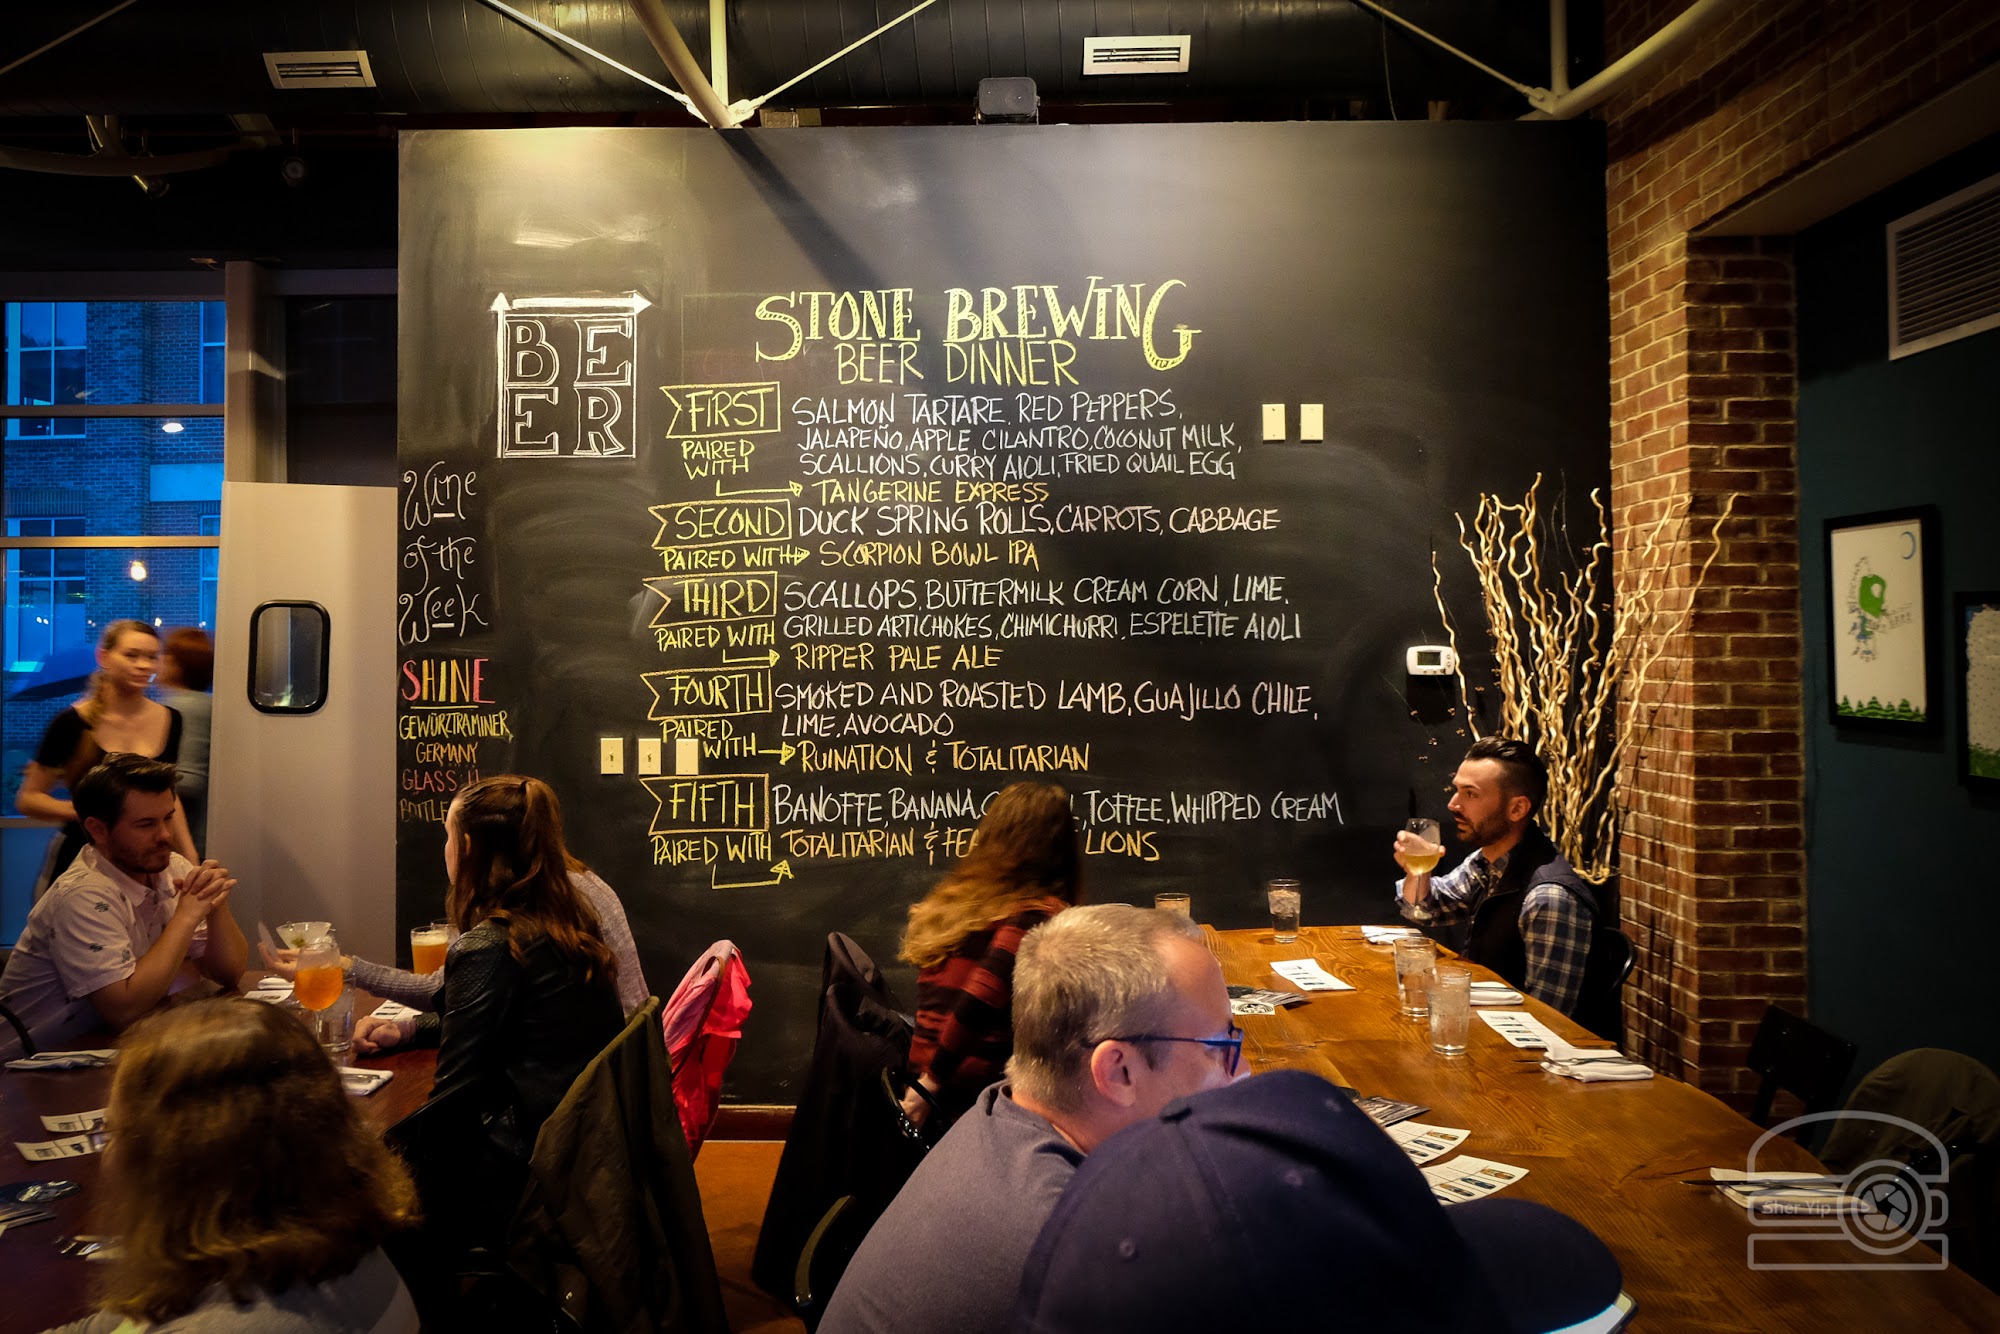 BE
ER
STONE BREWING
BEER DINNER
FIRST SALMON TARTARE, RED PEPPERS,
JALAPEÑO, APPLE, CILANTRO, COCONUT MILK,
SCALLIONS, CURRY AIOLI, FRIED QUAIL EGG
PAIRED
WITH
TANGERINE EXPRESS
SECOND DUCK SPRING ROLLS, CARROTS, CABBAGE
PAIRED WITH SCORPION BOWL IPA
THIRD SCALLOPS, BUTTERMILK CREAM CORN, LIME,
PAIRED WITH GRILLED ARTICHOKES, CHIMICHURRI, ESPELETTE AIOLI
RIPPER PALE ALE
FOURTH SMOKED AND ROASTED LAMB, GUAJILLO CHILE,
LIME, AVOCADO
PAIRED
WITH RUINATION & TOTALITARIAN
FIFTH BANOFFE, BANANA, TOFFEE, WHIPPED CREAM
PAIRED WITH TOTALITARIAN & LIONS
Wine
of the
Week
SHINE
GEWÜRZTRAMINER,
GERMANY
GLASS: 11
BOTTLE
Sher Yip